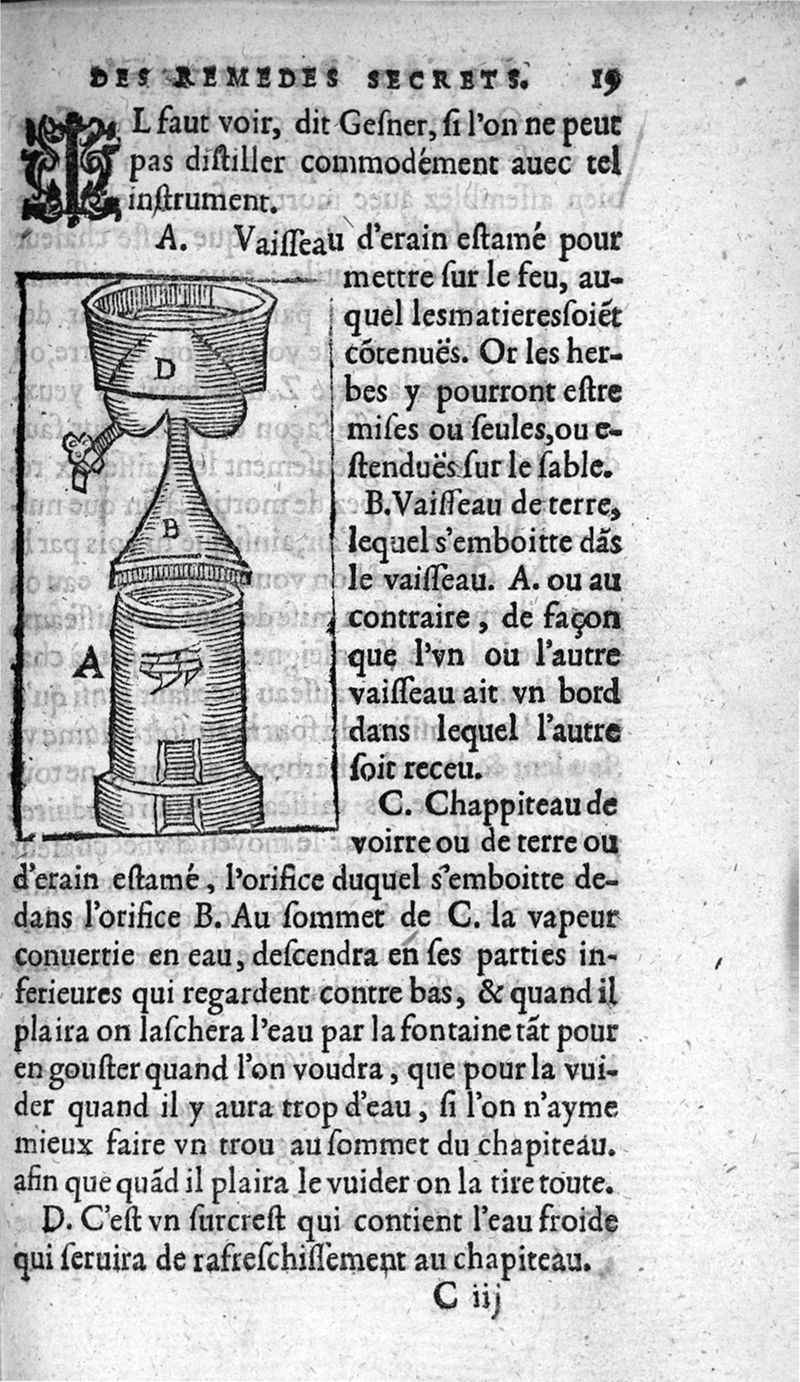 DES REMEDES SECRETS. 19
IL faut voir, dit Geſner, ſi l'on ne peut
pas diſtiller commodément auec tel
inſtrument.
A. Vaiſſeau d'erain eſtamé pour
mettre ſur le feu, au-
quel lesmatieresſoiẽt
cõtenuës. Or les her-
bes y pourront eſtre
miſes ou ſeules, ou e-
ſtenduës ſur le ſable.
B. Vaiſſeau de terre,
lequel s'emboitte dãs
le vaiſſeau. A. ou au
contraire, de façon
que l'vn ou l'autre
vaiſſeau ait vn bord
dans lequel l'autre
ſoit receu.
C. Chappiteau de
voirre ou de terre ou
d'erain eſtamé, l'orifice duquel s'emboitte de-
dans l'orifice B. Au ſommet de C. la vapeur
conuertie en eau, deſcendra en ſes parties in-
ferieures qui regardent contre bas, & quand il
plaira on laſchera l'eau par la fontaine tãt pour
en gouſter quand l'on voudra, que pour la vui-
der quand il y aura trop d'eau, ſi l'on n'ayme
mieux faire vn trou au ſommet du chapiteau.
afin que quãd il plaira le vuider on la tire toute.
D. C'eſt vn ſurcreſt qui contient l'eau froide
qui ſeruira de rafreſchiſſement au chapiteau.
C iij
D
B
A